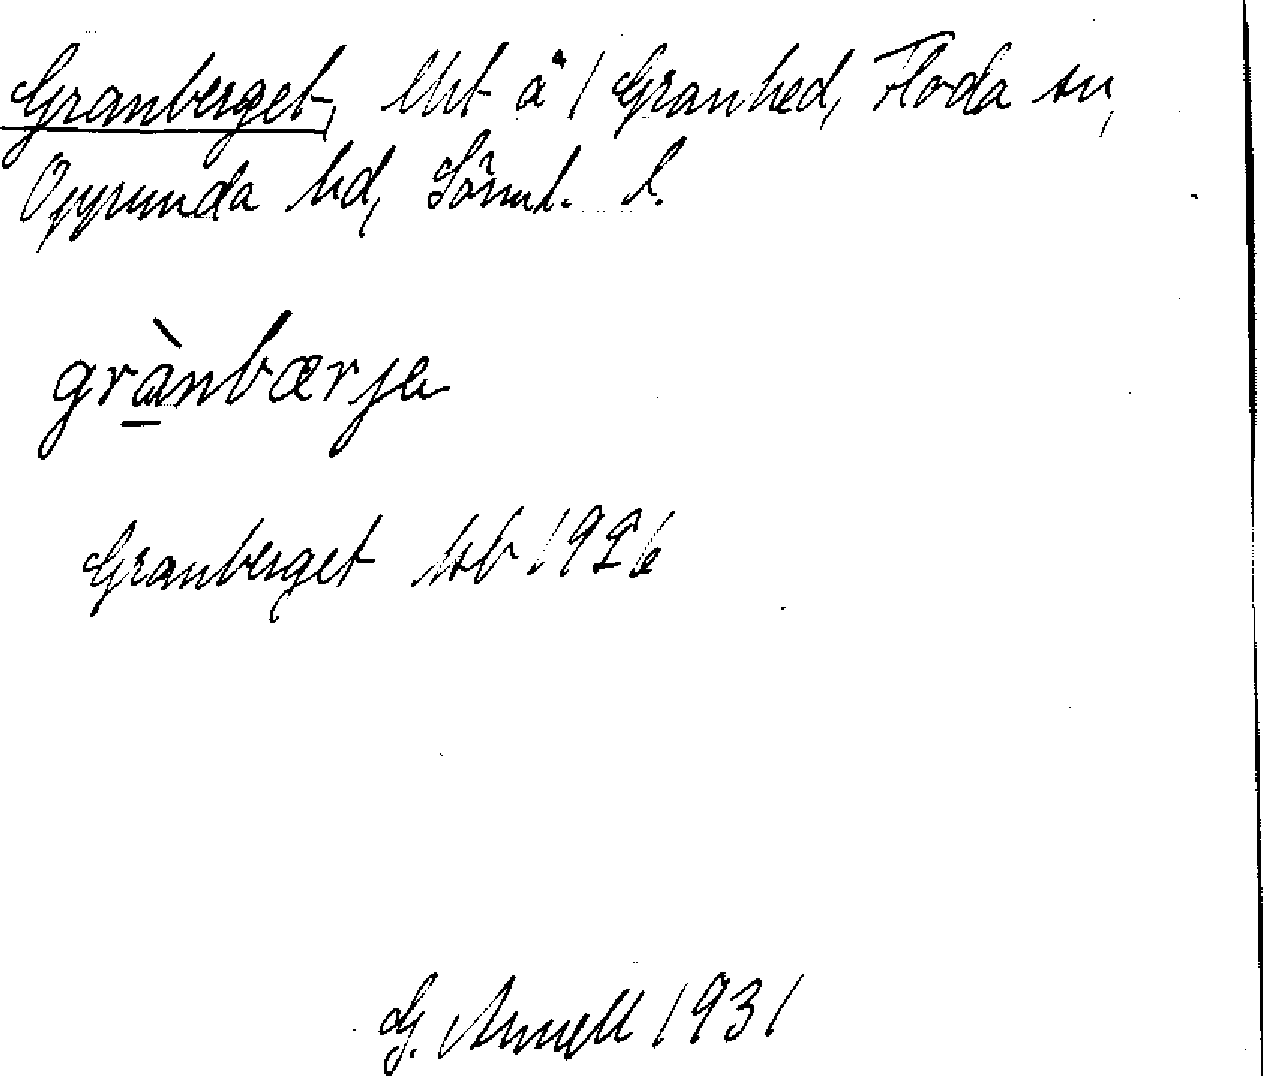 Granberget, Uht å 1 Granhed, Floda sn,
Oppunda hd, Sörml. l.
grànbærje
Granberget Hb 1926
G. Annell 1931